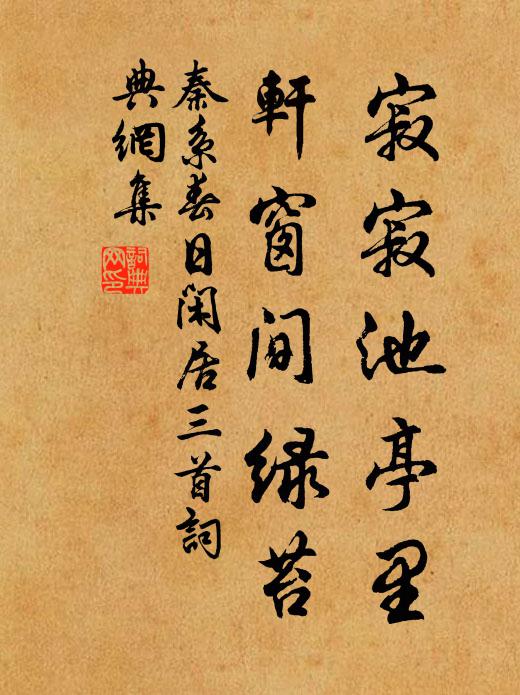 寂寂池亭里
軒窗間綠苔
秦系春日閑居三首詞
典網集
詞典
网印